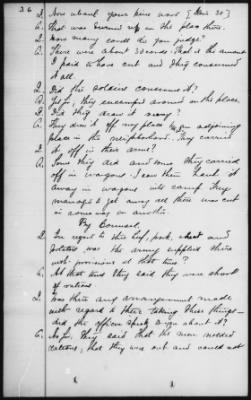 26
Q. Now about your pine wood [Item 30]
A. That was burned up on the place there.
Q. How many cords do you judge?
A. There were about 30 cords. That is the amount
I paid to have cut and they consumed
it all.
Q. Did the soldiers consume it?
A. Yes sir, they encamped around on the place.
Q. Did they draw it away?
A. They drew it off my place to an adjoining
place in the neighborhood. They carried
Q. it off in their arms?
A. Some they did and some they carried
off in wagons. I saw them haul it
away in wagons into camp. They
managed to get away all there was cut
in some way or another.
By Counsel.
Q. In regard to this beef, pork, wheat and
potatoes was the army supplied there
with provisions at that time?
A. At that time they said they were short
of rations
Q. Was there any arrangement made
with regard to their taking these things—
did the officer speak to you about it?
A. No sir, they said that the men needed
rations, that they were out and could not